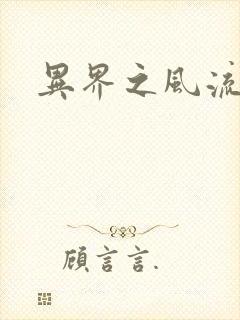 異界之風流
顧言言.